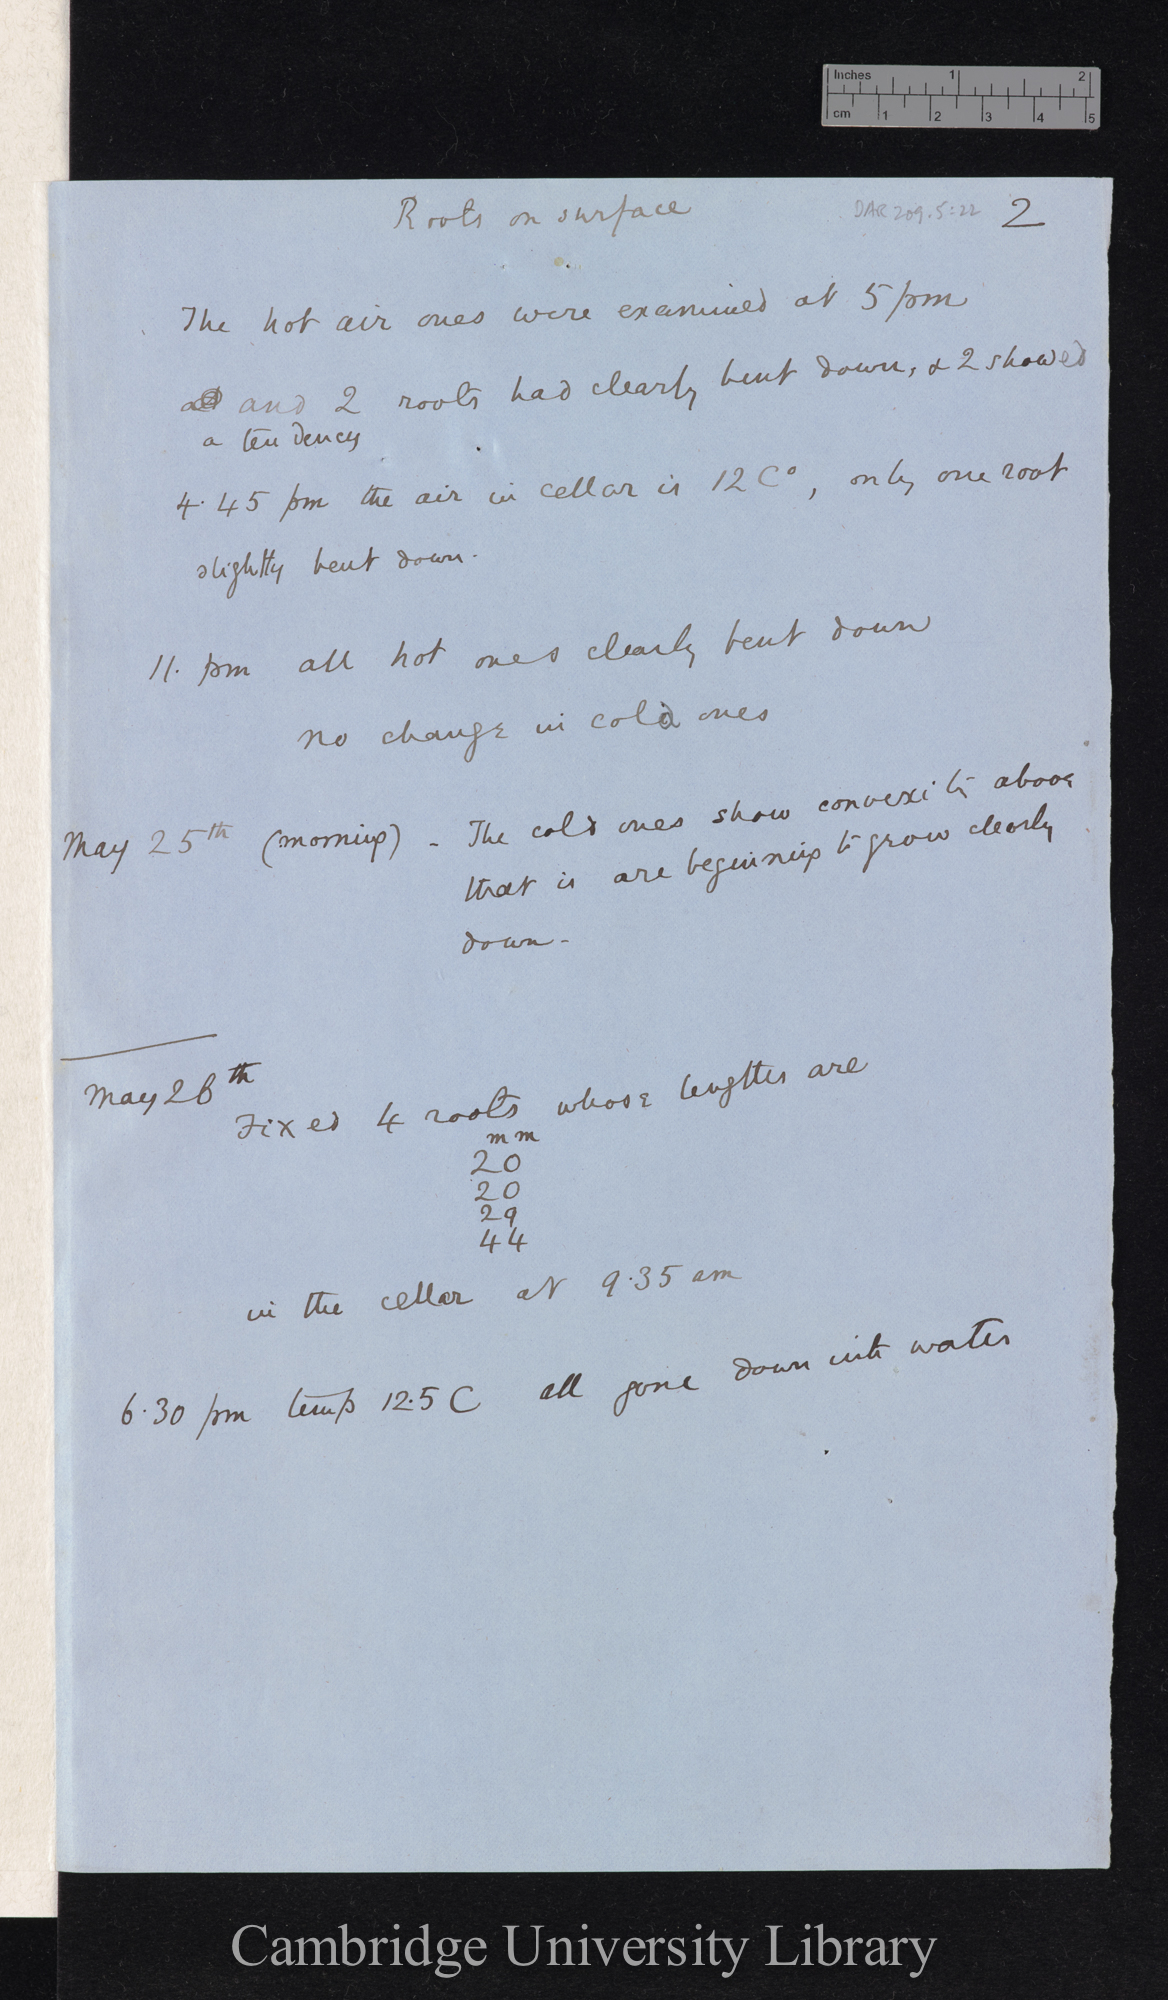 Inches 1 2
cm 1 2 3 4 5
Roots on surface DAR 209.5:22 2
The hot air ones were examined at 5 pm
and 2 roots had clearly bent down, & 2 showed
a tendency
4.45 pm the air in cellar is 12 C°, only one root
slightly bent down.
11. pm all hot ones clearly bent down
no change in cold ones
May 25th (morning) - The cold ones show convexity above
that is are beginning to grow clearly
down-
May 26th
Fixed 4 roots whose lengths are
mm
20
20
29
44
in the cellar at 9.35 am
6.30 pm temp 12.5 C all gone down into water
Cambridge University Library